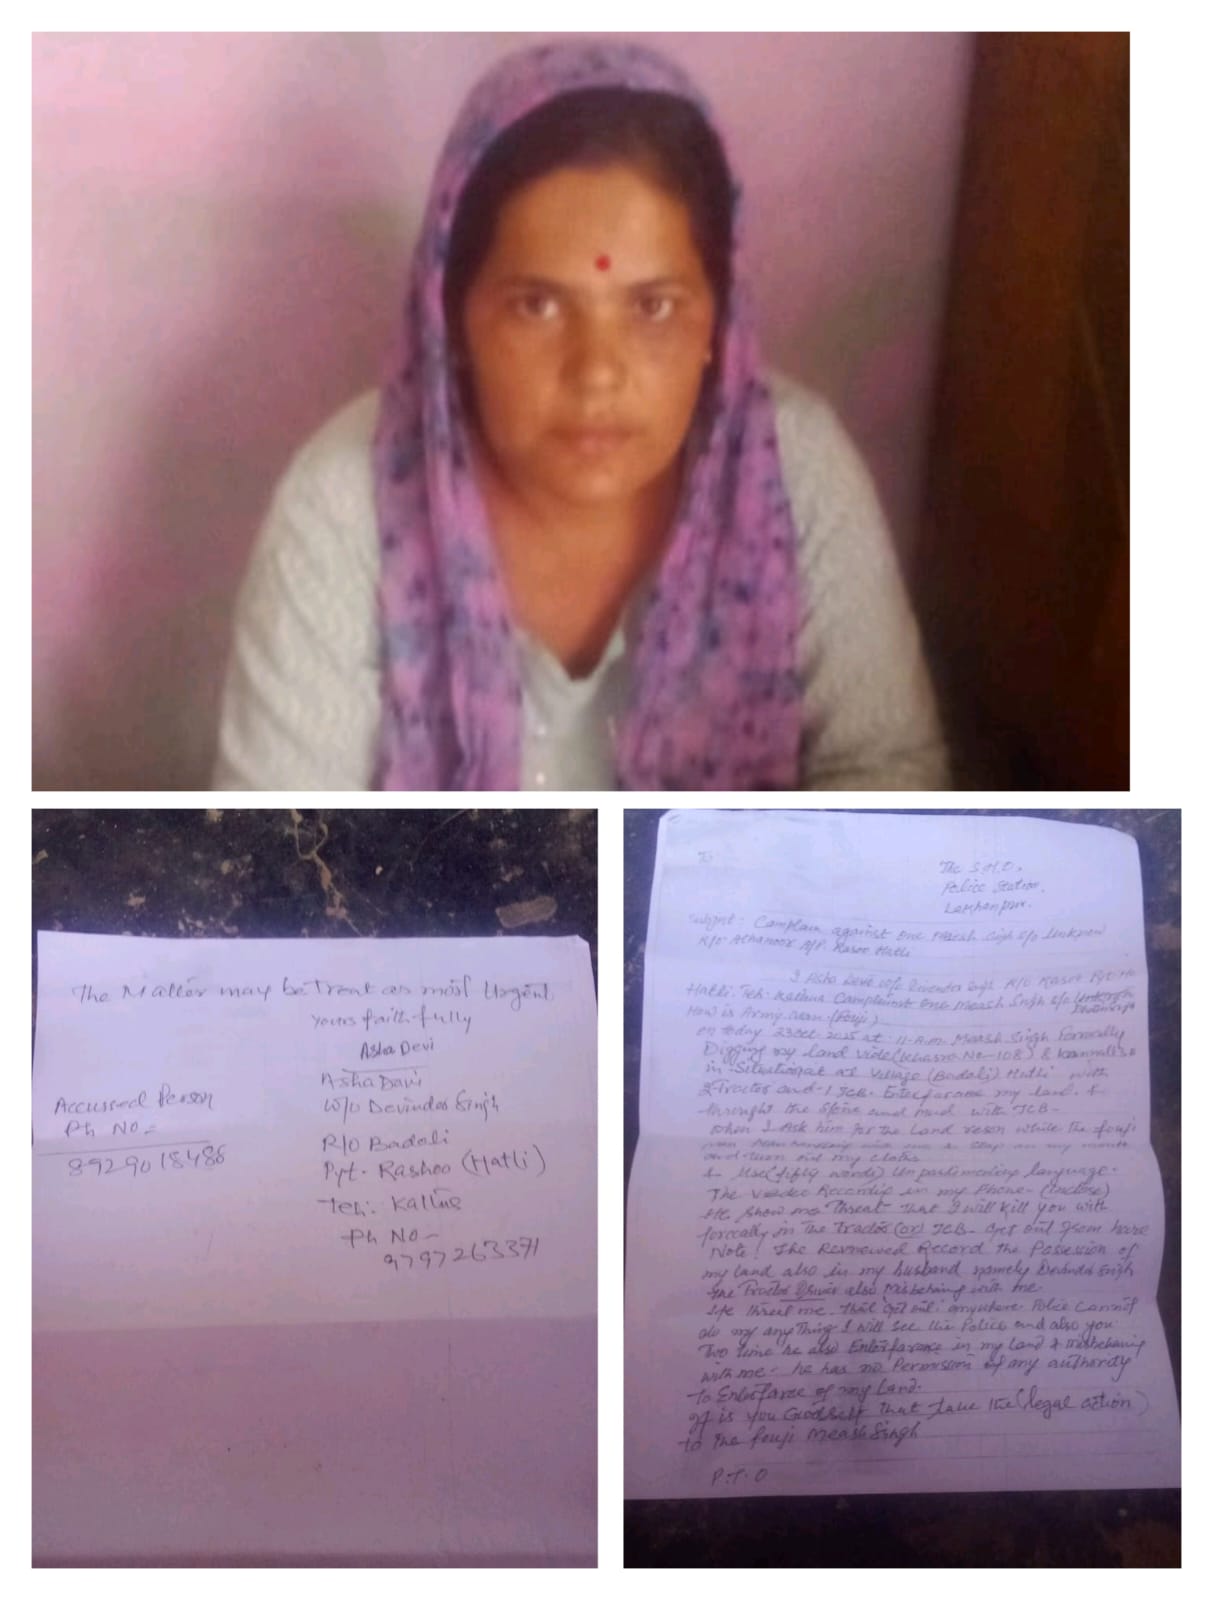 The Matter may be Treat as most Urgent
Yours faithfully
Asha Devi
Asha Davi
W/o Devinder Singh
R/o Badali
Pyt. Rashoo (Hatli)
Teh:
Ph No-
9797263371
Accussed Person
Ph No=
8929018486
To
The S.H.O.
Police Station,
Lakhanpur.
Subject:- Complain against one Singh S/o Unknown
R/o A/P. Hatli
I Asha Devi W/o Singh R/o Pyt
Hatli. Teh. Kathua Complainst one Meash Singh S/o
How is Army man (Fouji)
on today 23 Oct. 2025 at 11-A.M. Meash Singh Forcally
Digging my land vide (Khasra No-108) &
in Situation at Village (Badali) Hatli with
2 Tractor and -1 JCB. Enterfarance my land. &
throught the and mud with JCB-
When I Ask him for the Land reson while the fouji
man me & slap on my mouth
and my
& Use (filty words) Un language.
The Video Recordig in my Phone- (Inclose)
He show me Threat That I will Kill you with
forcally in The Tractor (or) JCB- get out from here
Note! The Record the Possession of
my land also in my husband namely Devinder Singh
The Tractor Driver also Misbehaing with me.
He me that get out anywhere Police Cannot
do my any Thing I will see the Police and also you
Two time he also Enterfarance in my Land & misbehaing
with me- he has no Permission of any authority
To Enterfarance of my Land.
is you Goodself That take the (legal action)
to The fouji Meash Singh
P.T.O